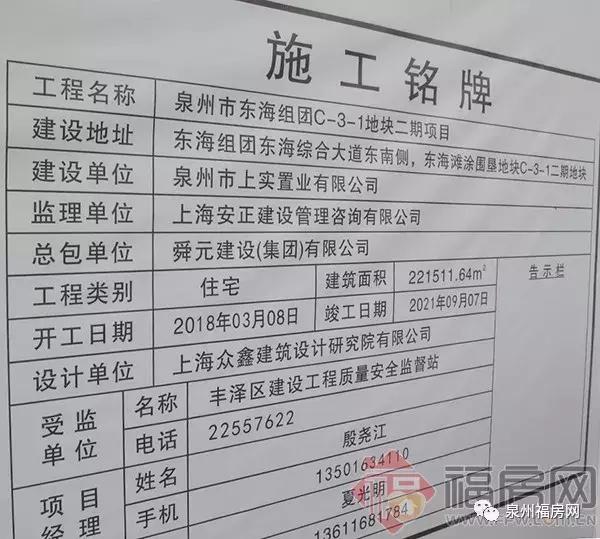 施工铭牌
工程名称 泉州市东海组团C-3-1地块二期项目
建设地址 东海组团东海综合大道东南侧，东海滩涂围垦地块C-3-1二期地块
建设单位 泉州市上实置业有限公司
监理单位 上海安正建设管理咨询有限公司
总包单位 舜元建设(集团)有限公司
工程类别 住宅 建筑面积 221511.64㎡ 告示栏
开工日期 2018年03月08日 竣工日期 2021年09月07日
设计单位 上海众鑫建筑设计研究院有限公司
受监单位 名称 丰泽区建设工程质量安全监督站
电话 22557622
项目经理 姓名 殷尧江
手机 13501634110
夏光明
13611681784
福房网
WWW.FW.COM.CN
泉州福房网